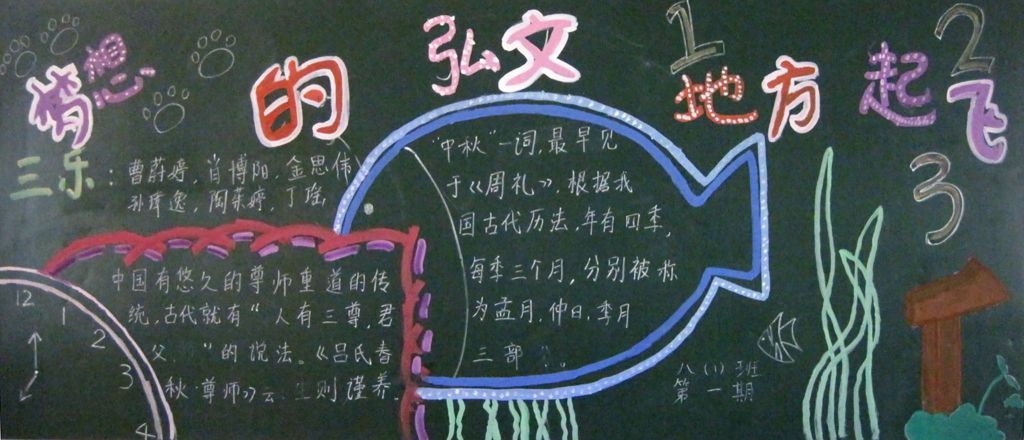 猜想的弘文地方起飞
1
2
3
三乐:曹蔚婷,肖博阳,金思伟
孙玮逸,陶茱婷,丁瑶
中国有悠久的尊师重道的传
统,古代就有"人有三尊,君
父"的说法。《吕氏春
秋·尊师》云:生则谨养
"中秋"一词,最早见
于《周礼》.根据我
国古代历法,年有四季,
每季三个月,分别被称
为孟月,仲日,季月
三部。
八(1)班
第一期
12
1
2
3
4